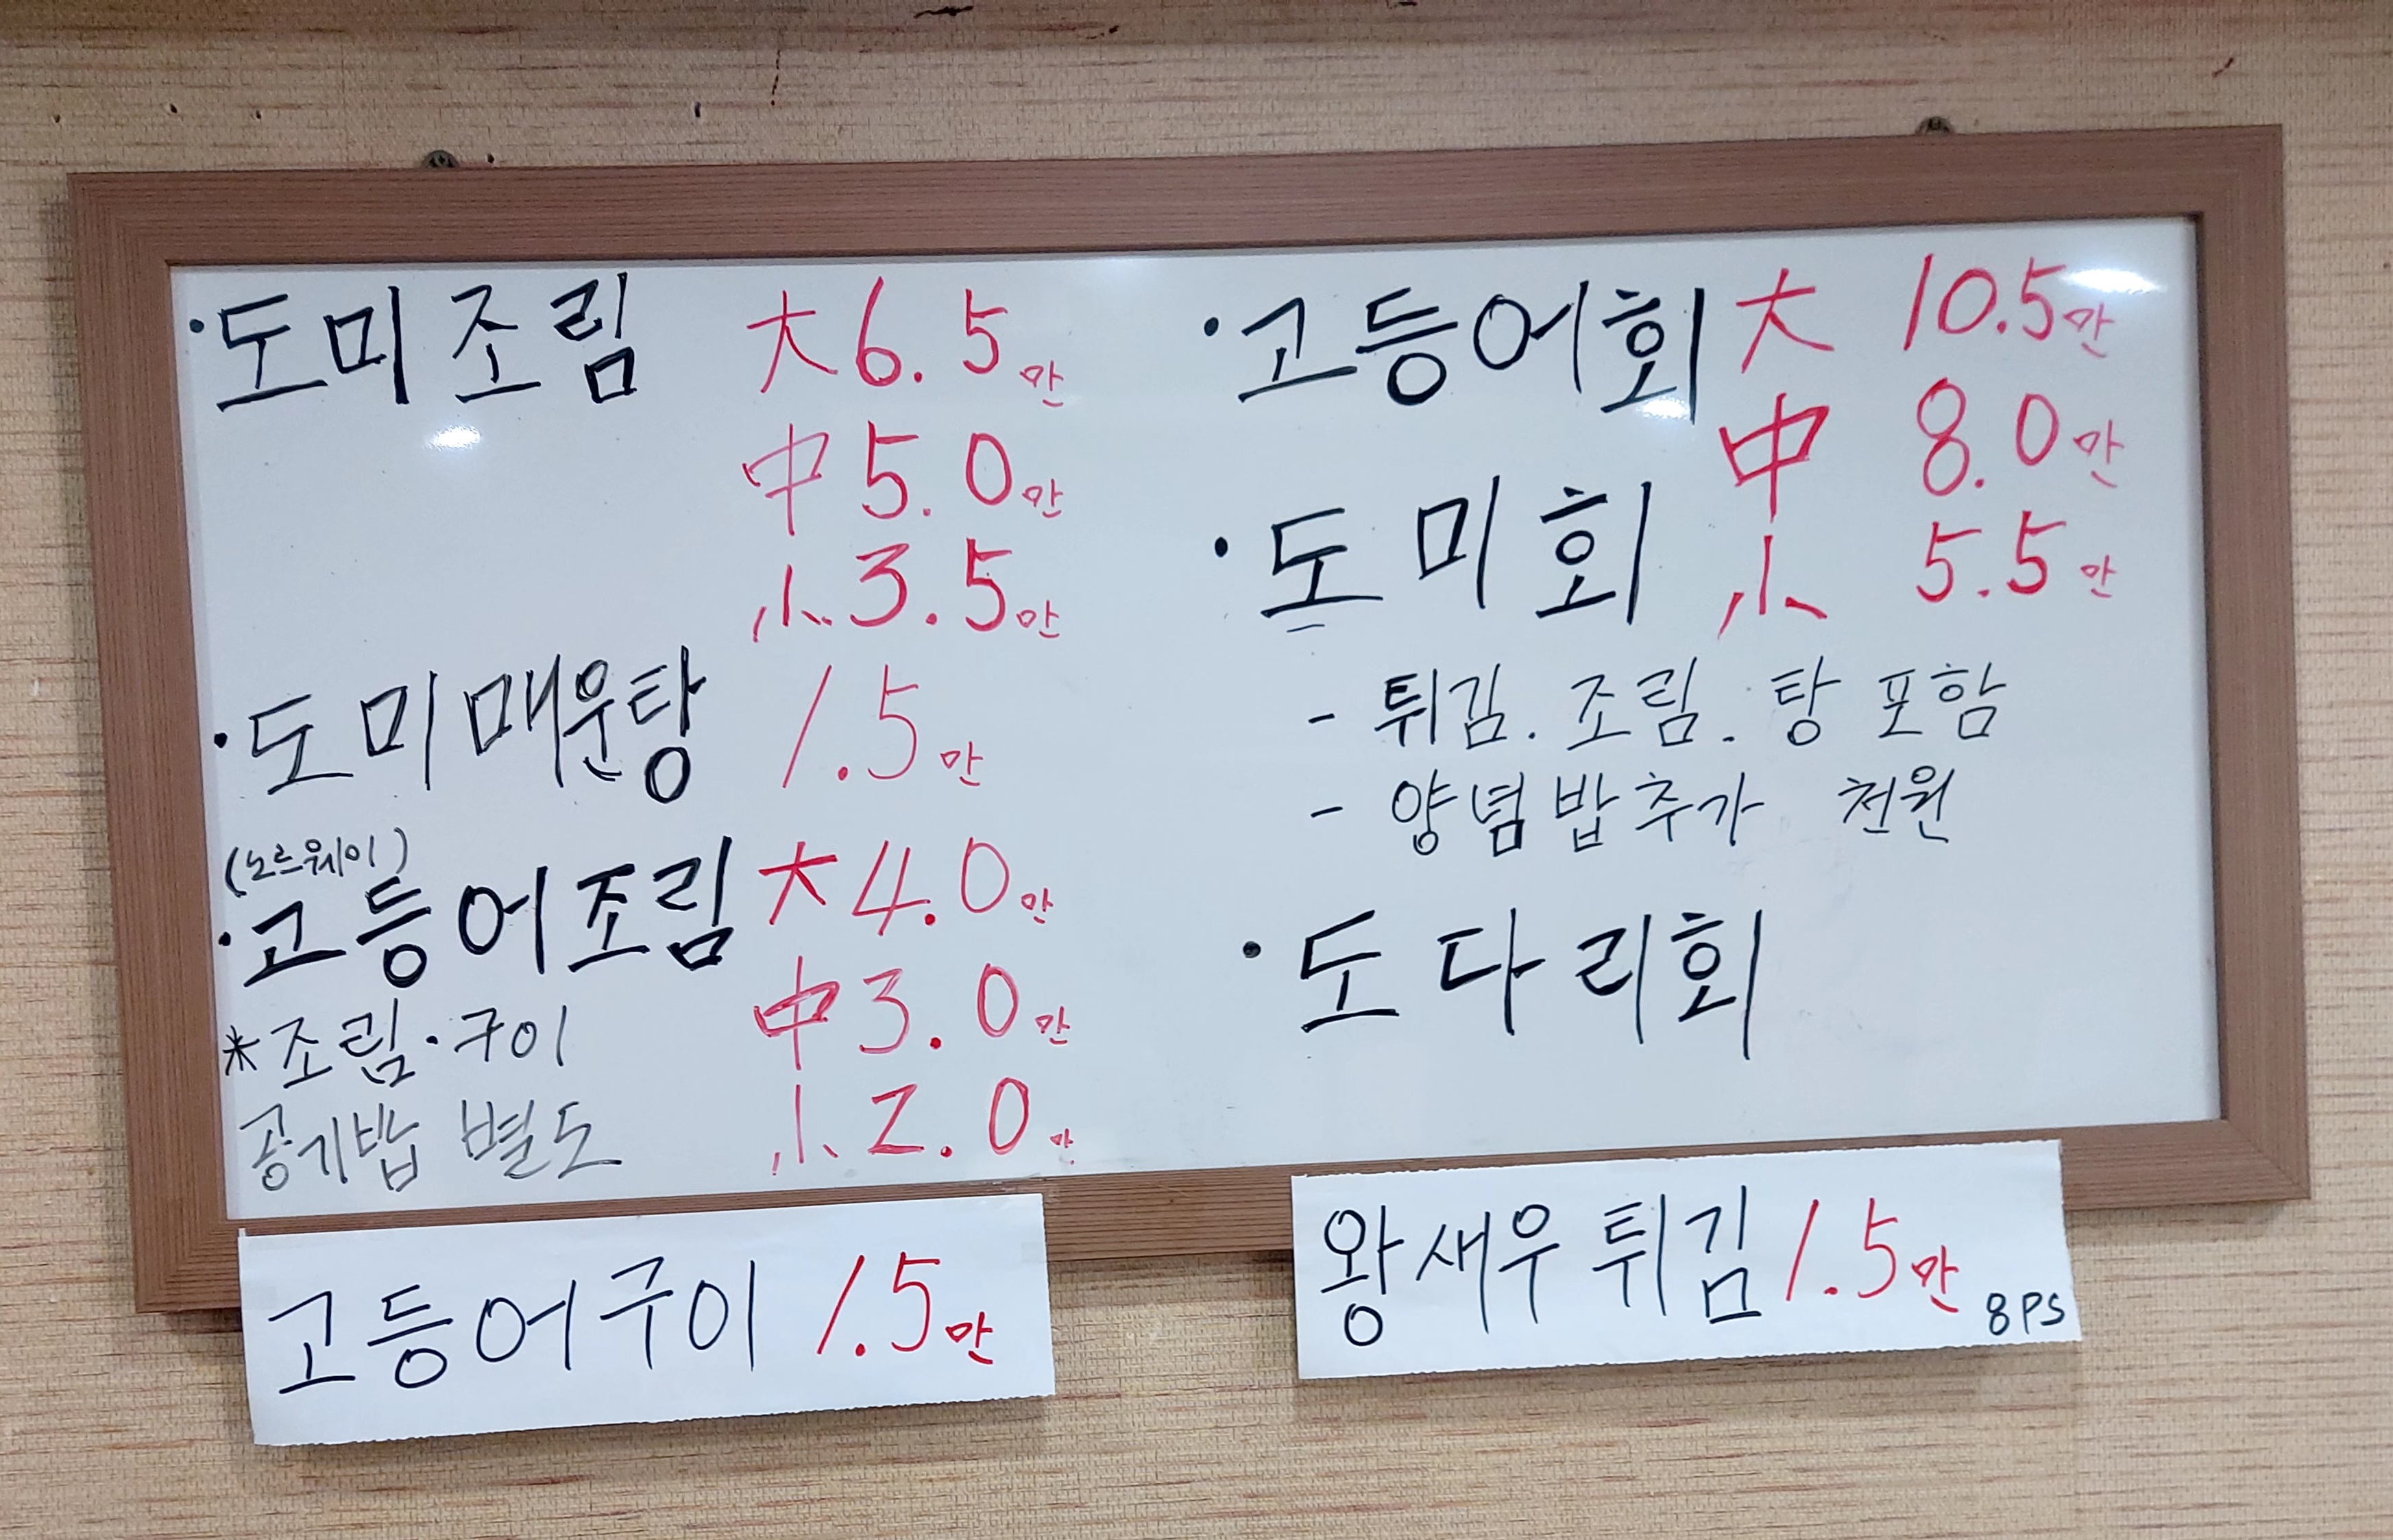 · 도미조림 大 6.5만
中 5.0만
小 3.5만
· 도미매운탕 1.5만
(노르웨이)
· 고등어조림 大 4.0만
中 3.0만
小 2.0만
* 조림·구이
공기밥 별도
고등어구이 1.5만
· 고등어회 大 10.5만
中 8.0만
· 도미회 小 5.5만
- 튀김. 조림. 탕 포함
- 양념밥추가 천원
· 도다리회
왕새우튀김 1.5만
8PS